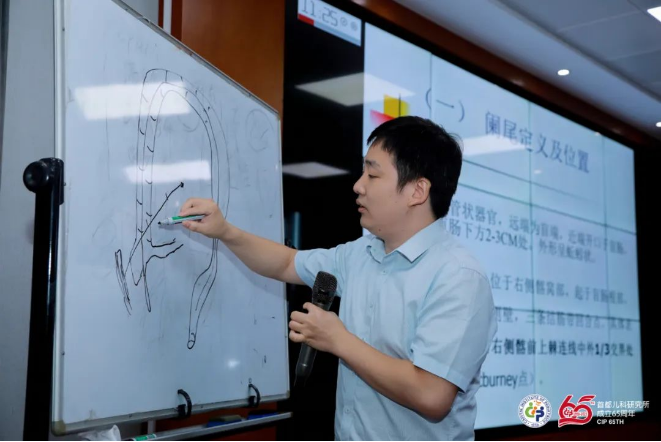 11:25
（一） 阑尾定义及位置
管状器官，远端为盲端，近端开口于盲肠，
肠下方2-3CM处，外形呈蚯蚓状。
位于右侧髂窝部，起于盲肠根部，
右侧髂前上棘连线中外1/3交界处
burney点）
65
首都儿科研究所
成立65周年
CIP 65TH